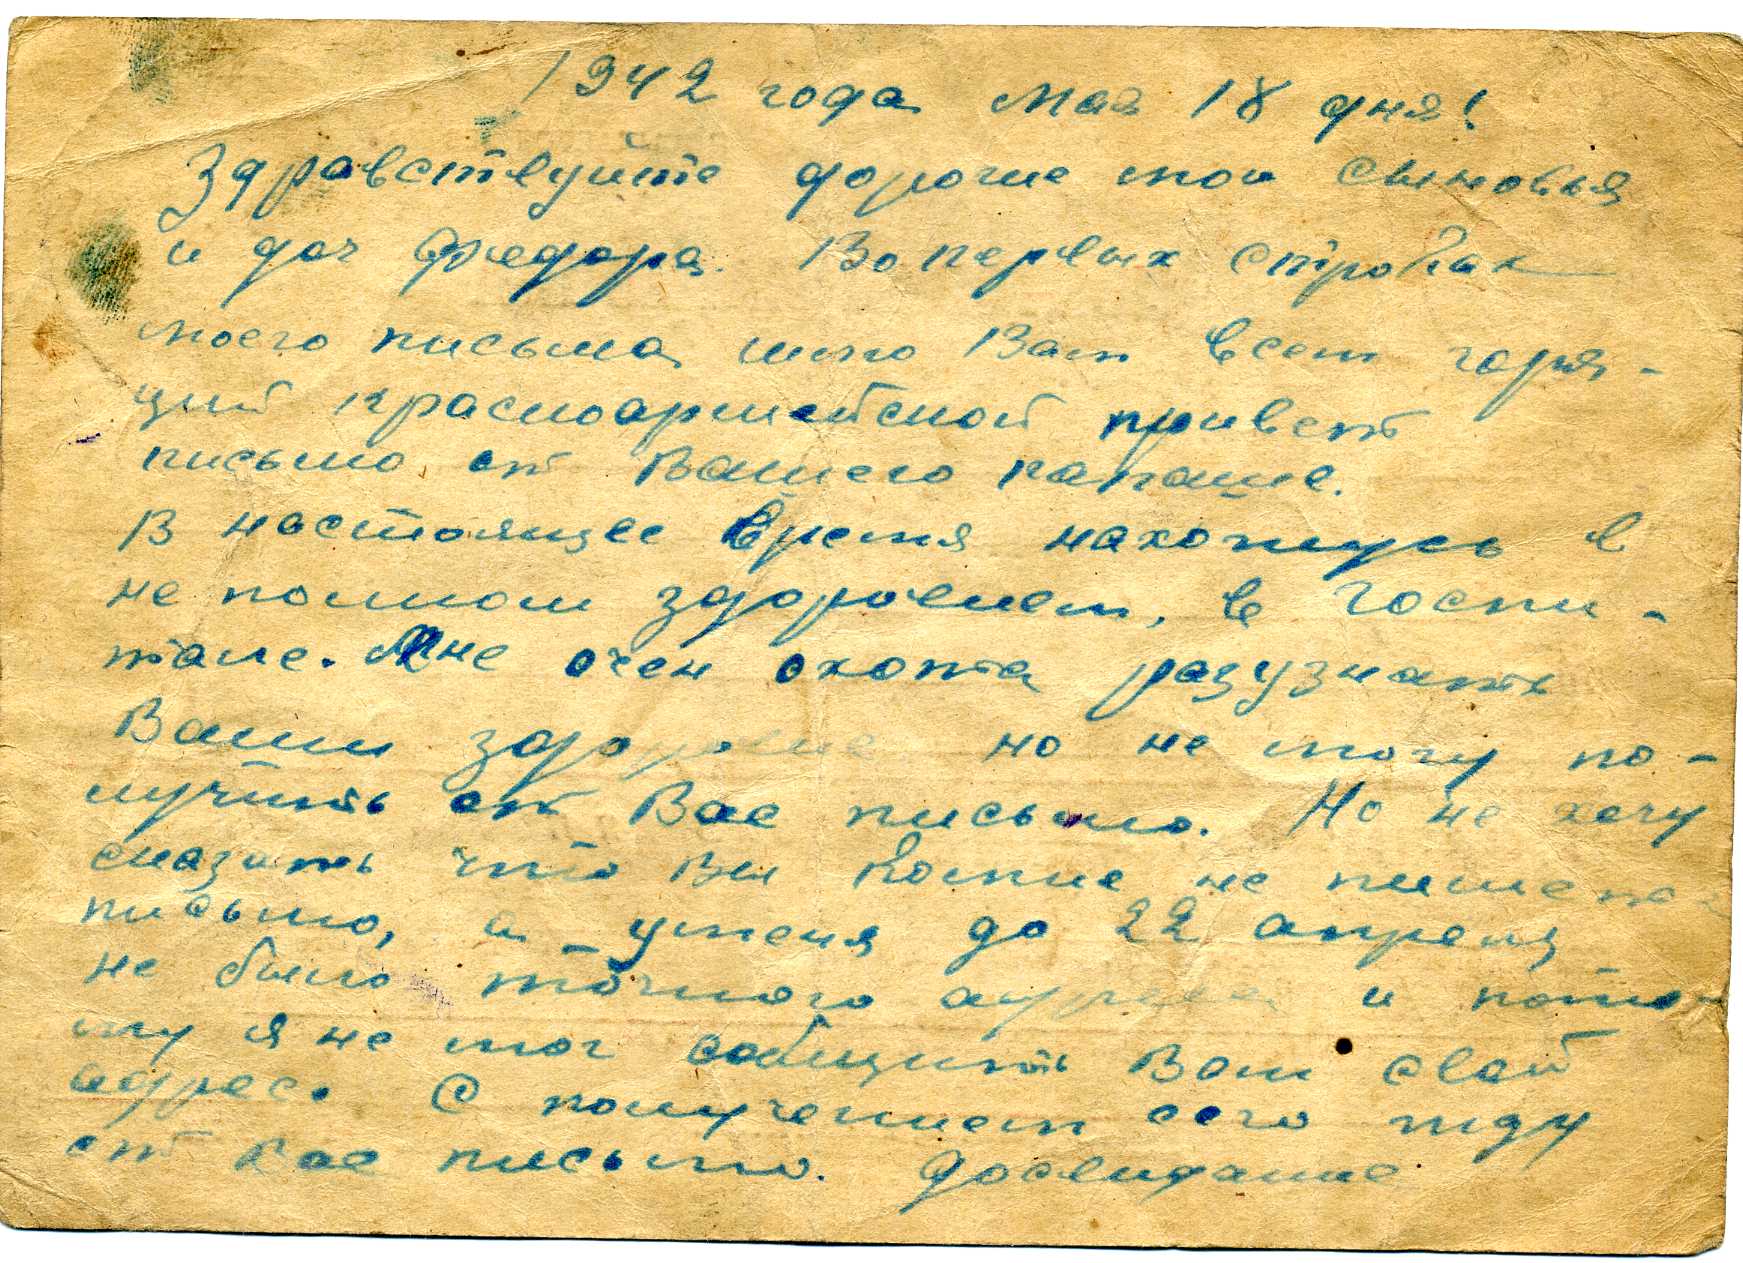 1942 года мая 18 дня!
Здравствуйте дорогие мои сыновья
и доч Федора. Во первых строках
моего письма шлю Вам всем горя-
щий красноармейской привет
письмо от Вашего папаше.
В настоящее время нахотусь в
не полном здоровием, в госпи-
тале. Мне очен охота разузнать
Ваши здоровие но не могу по-
лучить от Вас письмо. Но не хочу
сказать что Вы не пишете
письмо, а уменя до 22 апреля
не было точного адреса и пото-
му я не мог собщить Вам свой
адрес. С получением сего жду
от Вас письмо. Досвидание